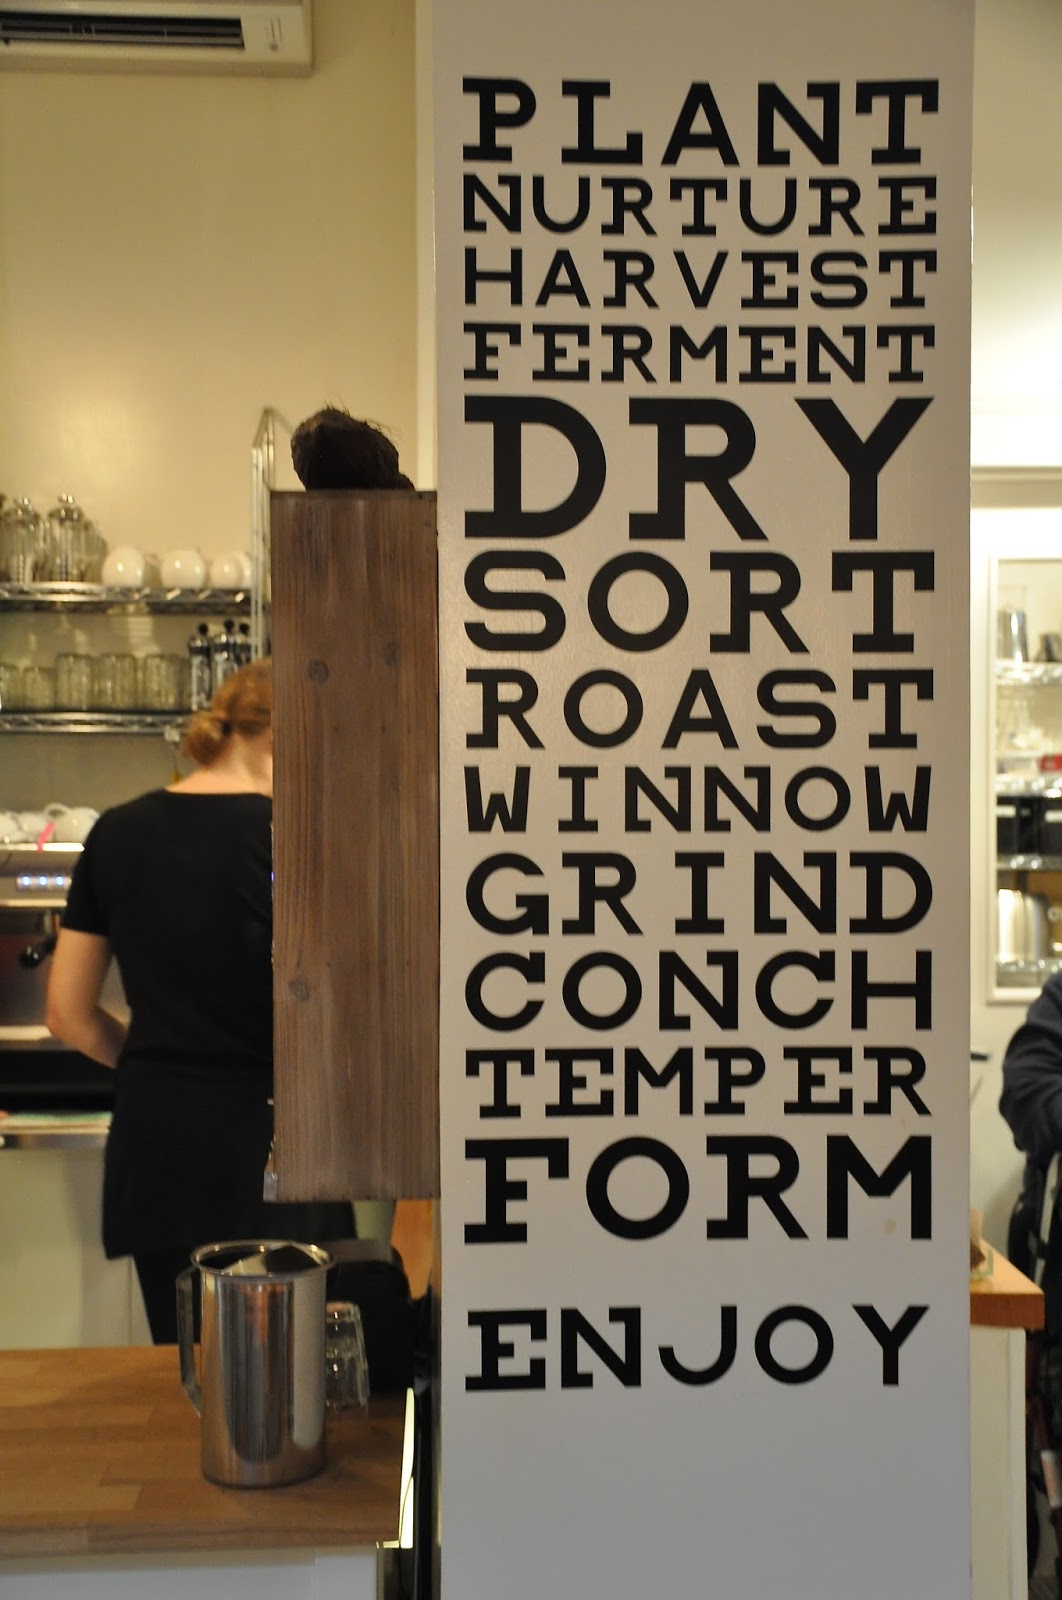 PLANT
NURTURE
HARVEST
FERMENT
DRY
SORT
ROAST
WINNOW
GRIND
CONCH
TEMPER
FORM
ENJOY